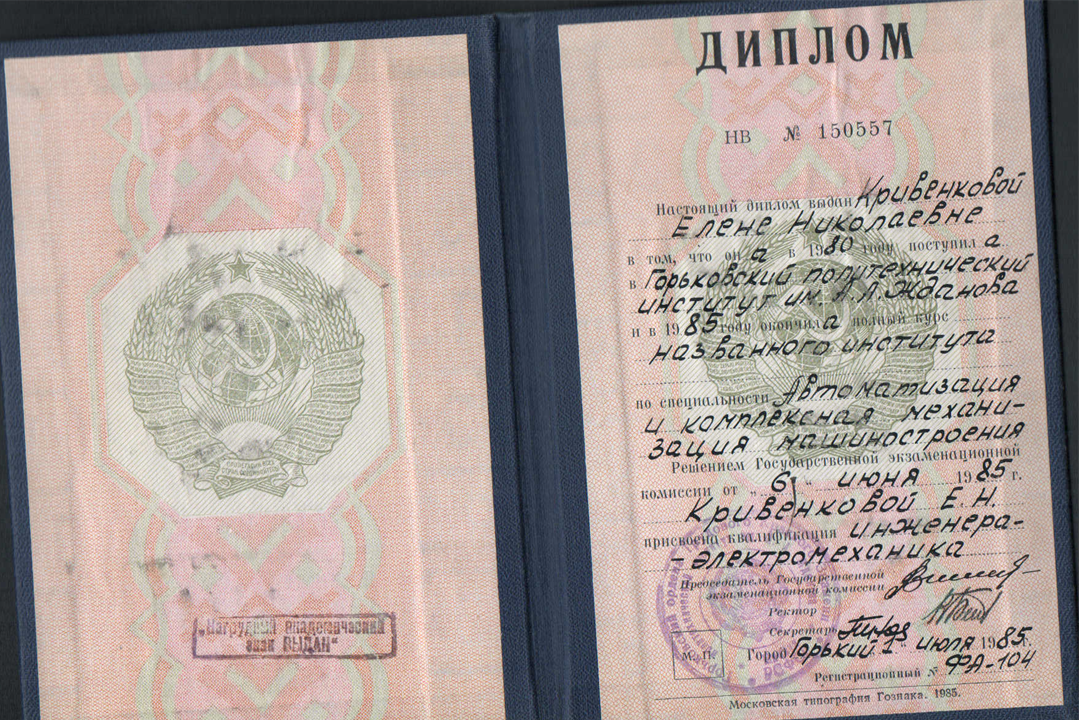 „Нагрудный академический
знак ВЫДАН“
ДИПЛОМ
НВ № 150557
Настоящий диплом выдан Кривенковой
Елене Николаевне
в том, что он а в 1980 году поступил а
в Горьковский политехнический
институт им А.А.Жданова
и в 1985 году окончил а полный курс
названного института
по специальности Автоматизация
и комплексная механи-
зация машиностроения
Решением Государственной экзаменационной
комиссии от „6“ июня 1985 г.
Кривенковой Е.Н.
присвоена квалификация инженера-
-электромеханика
Председатель Государственной
экзаменационной комиссии
Ректор
Секретарь
М. П. Город Горький 1 июля 1985 г.
Регистрационный № ФА-104
Московская типография Гознака. 1985.